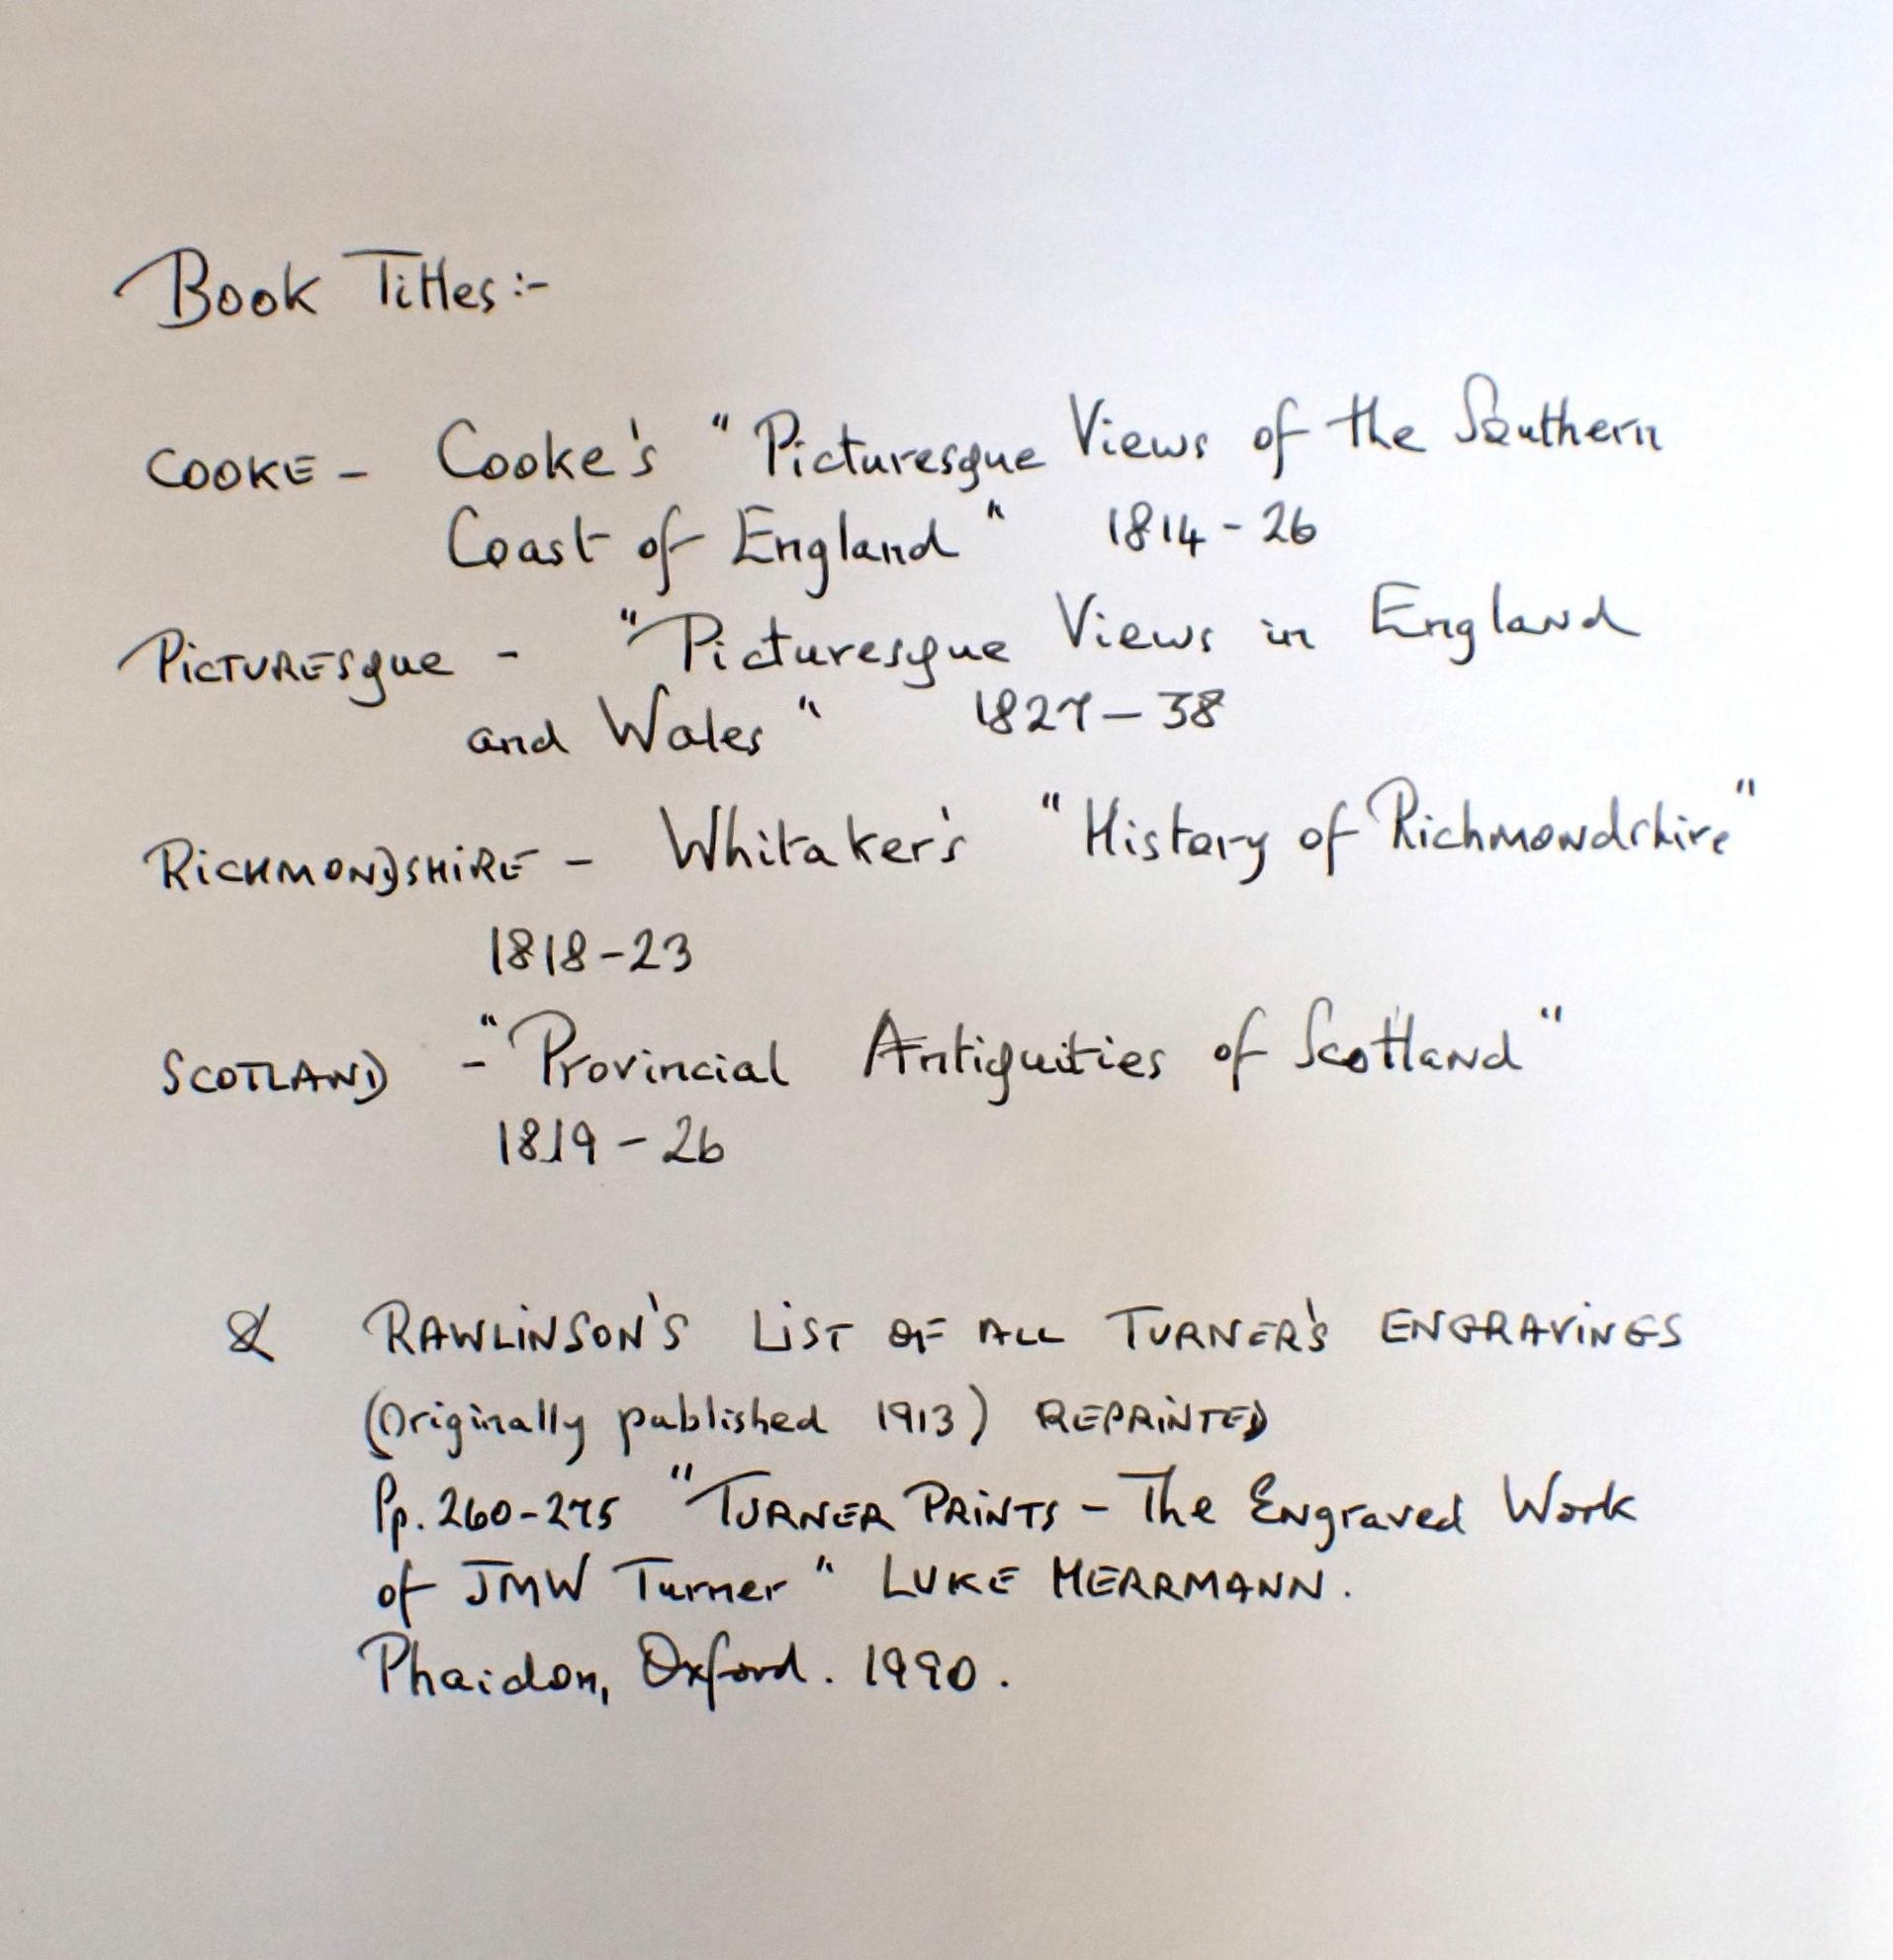 Book Titles:-
COOKE - Cooke's "Picturesque Views of the Southern
Coast of England" 1814-26
PiCTURESque - "Picturesque Views in England
and Wales" 1827-38
RiCHMONDSHiRE - Whitaker's "History of Richmondshire"
1818-23
SCOTLAND - "Provincial Antiquities of Scotland"
1819-26
& RAWLiNSON'S LiST OF ALL TURNER'S ENGRAViNGS
(Originally published 1913) REPRiNTED
Pp. 260-275 "TURNER PRiNTS - The Engraved Work
of JMW Turner" LUKE HERRMANN.
Phaidon, Oxford. 1990.